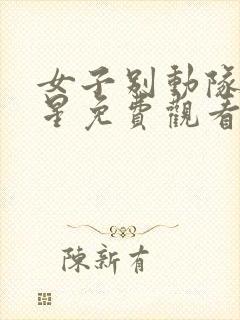 女子别動隊
星免費觀看
陳新有